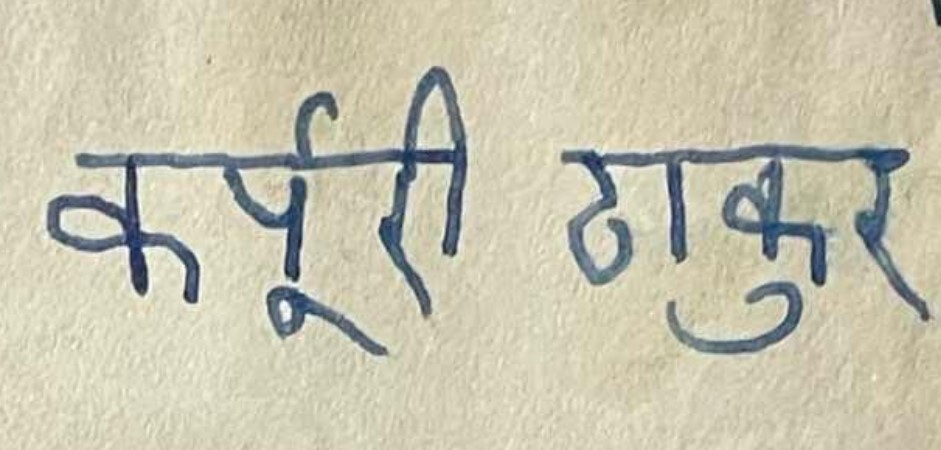 कर्पूरी ठाकुर